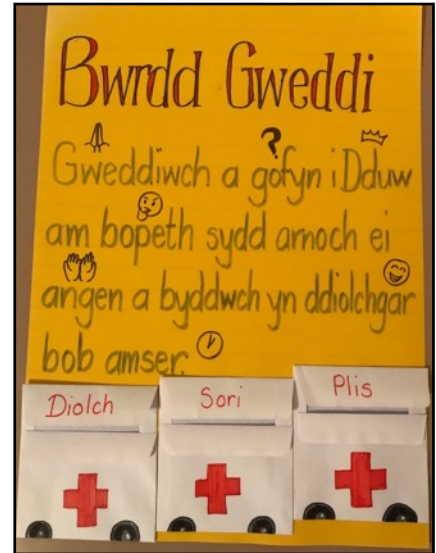 Bwrdd Gweddi
Gweddiwch a gofyn i Dduw
am bopeth sydd arnoch ei
angen a byddwch yn ddiolchgar
bob amser.
Diolch
Sori
Plis